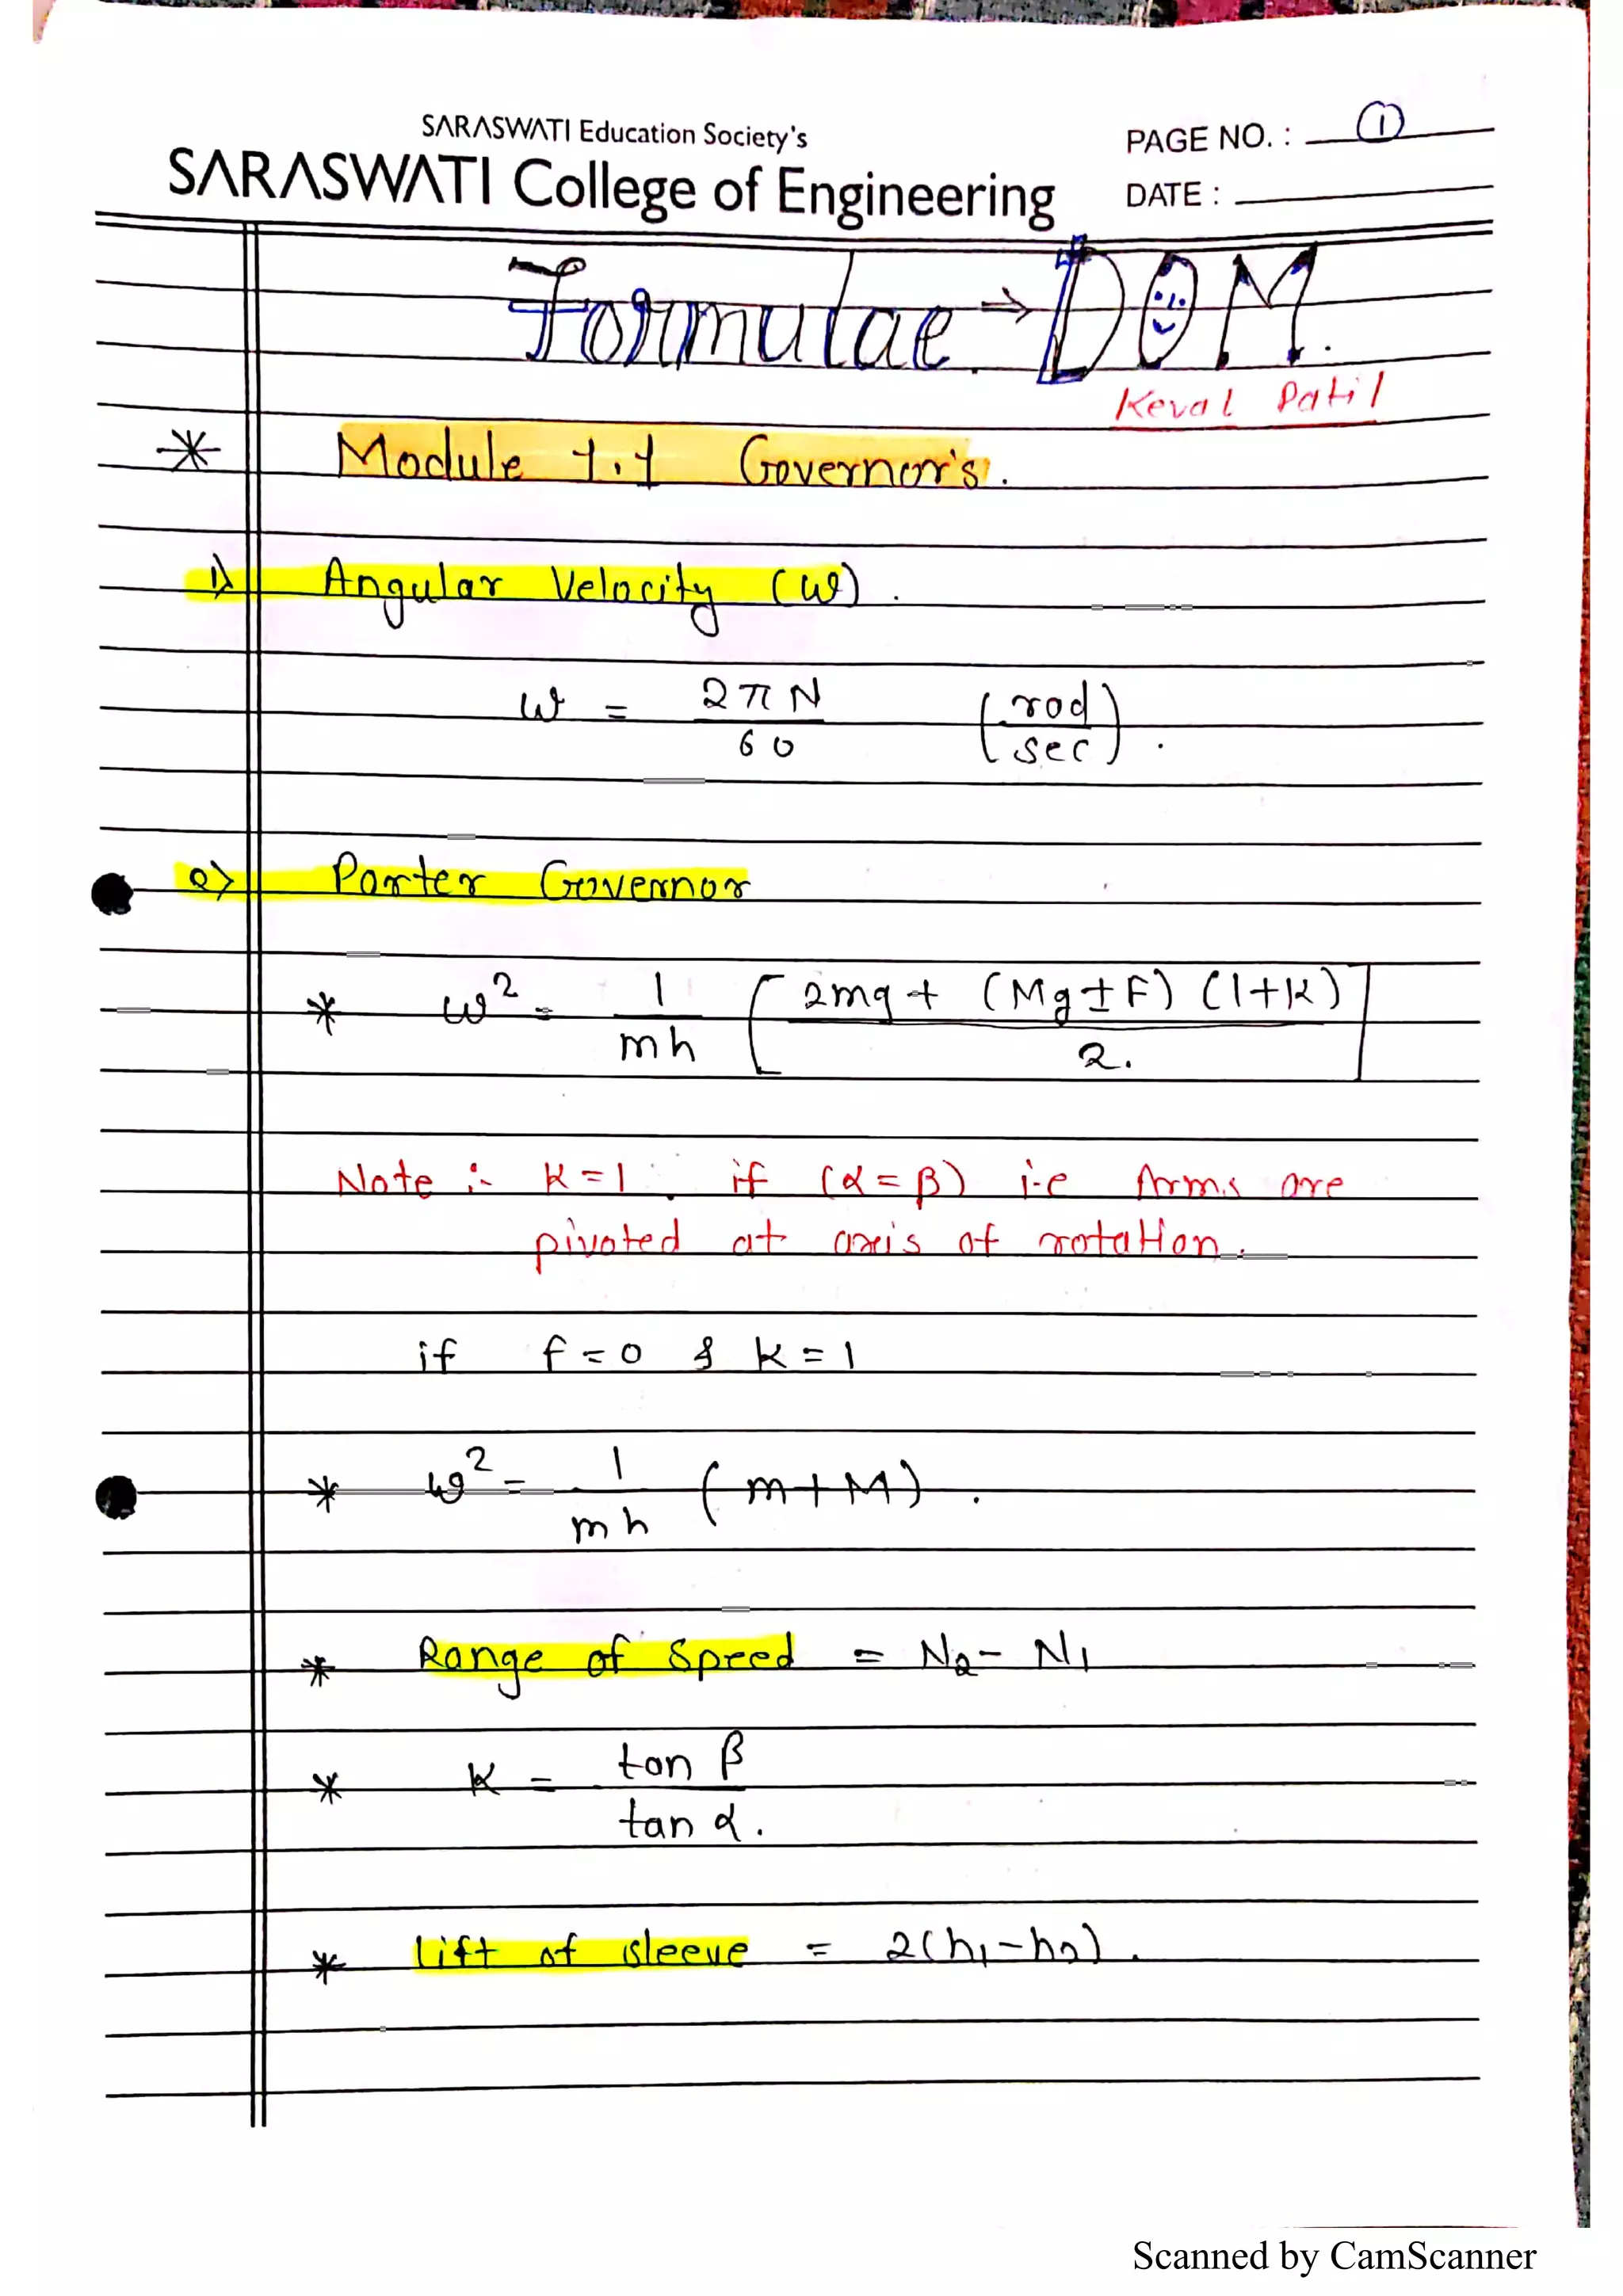 SARASWATI Education Society's
SARASWATI College of Engineering
PAGE NO. : 1
DATE :
Formulae → DOM.
Keval Patil
* Module 1.1 Governor's.
1) Angular Velocity (ω).
ω = 2πN / 60 (rad / sec).
2) Porter Governor
* ω² = 1 / mh [ 2mg + (Mg ± F) (1+K) / 2. ]
Note :- K = 1 . if (α = β) i.e Arms are
pivoted at axis of rotation.
if f = 0 & k = 1
* ω² = 1 / mh (m + M).
* Range of Speed = N₂ - N₁
* K = tan β / tan α.
* Lift of sleeve = 2(h₁ - h₂).
Scanned by CamScanner